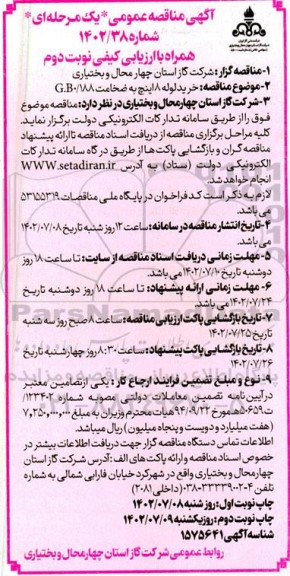 آگهی مناقصه عمومی "یک مرحله‌ای"
شماره ۱۴۰۲/۳۸
همراه با ارزیابی کیفی نوبت دوم
۱-مناقصه گزار: شرکت گاز استان چهار محال و بختیاری
۲-موضوع مناقصه: خرید لوله ۸ اینچ به ضخامت G.B/۰/۱۸۸
۳-شرکت گاز استان چهارمحال و بختیاری در نظر دارد: مناقصه موضوع
فوق را از طریق سامانه تدارکات الکترونیکی دولت برگزار نماید.
کلیه مراحل برگزاری مناقصه از دریافت اسناد مناقصه تا ارائه پیشنهاد
مناقصه گران و بازگشایی پاکت ها از طریق درگاه سامانه تدارکات
الکترونیکی دولت (ستاد) به آدرس WWW.setadiran.ir
انجام خواهد شد.
لازم به ذکر است کد فراخوان در پایگاه ملی مناقصات ۵۳۱۵۵۳۱۹
می باشد.
۴-تاریخ انتشار مناقصه در سامانه: ساعت ۱۲ روز شنبه تاریخ ۱۴۰۲/۰۷/۰۸
می باشد.
۵- مهلت زمانی دریافت اسناد مناقصه از سایت: تا ساعت ۱۸ روز
دوشنبه تاریخ ۱۴۰۲/۰۷/۱۰ می باشد.
۶- مهلت زمانی ارائه پیشنهاد: تا ساعت ۱۸ روز دوشنبه تاریخ
۱۴۰۲/۰۷/۲۴ می باشد.
۷-تاریخ بازگشایی پاکت ارزیابی مناقصه: ساعت ۸ صبح روز سه شنبه
تاریخ ۱۴۰۲/۰۷/۲۵
۸-تاریخ بازگشایی پاکت پیشنهاد: ساعت ۸:۳۰ روز چهارشنبه تاریخ
۱۴۰۲/۰۷/۲۶
۹- نوع و مبلغ تضمین فرایند ارجاع کار: یکی از تضامین معتبر
در آیین نامه تضمین معاملات دولتی مصوبه شماره ۱۲۳۴۰۲/
ت۵۰۶۵۹ه مورخ ۹۴/۰۹/۲۲ هیات محترم وزیران به مبلغ ۷,۲۵۰,۰۰۰,۰۰۰
(هفت میلیارد و دویست و پنجاه میلیون) ریال میباشد.
اطلاعات تماس دستگاه مناقصه گزار جهت دریافت اطلاعات بیشتر در
خصوص اسناد مناقصه و ارائه پاکت های الف: آدرس شرکت گاز استان
چهارمحال و بختیاری واقع در شهرکرد خیابان فارابی شمالی به شماره
تلفن ۲۰۴-۰۳۸۰۳۳۳۳۹۰۰ (داخلی ۲۰۸۱)
چاپ نوبت اول: روز شنبه ۱۴۰۲/۰۷/۰۸
چاپ نوبت دوم: روز یکشنبه ۱۴۰۲/۰۷/۰۹
شناسه آگهی ۱۵۷۵۶۴۱
روابط عمومی شرکت گاز استان چهارمحال و بختیاری